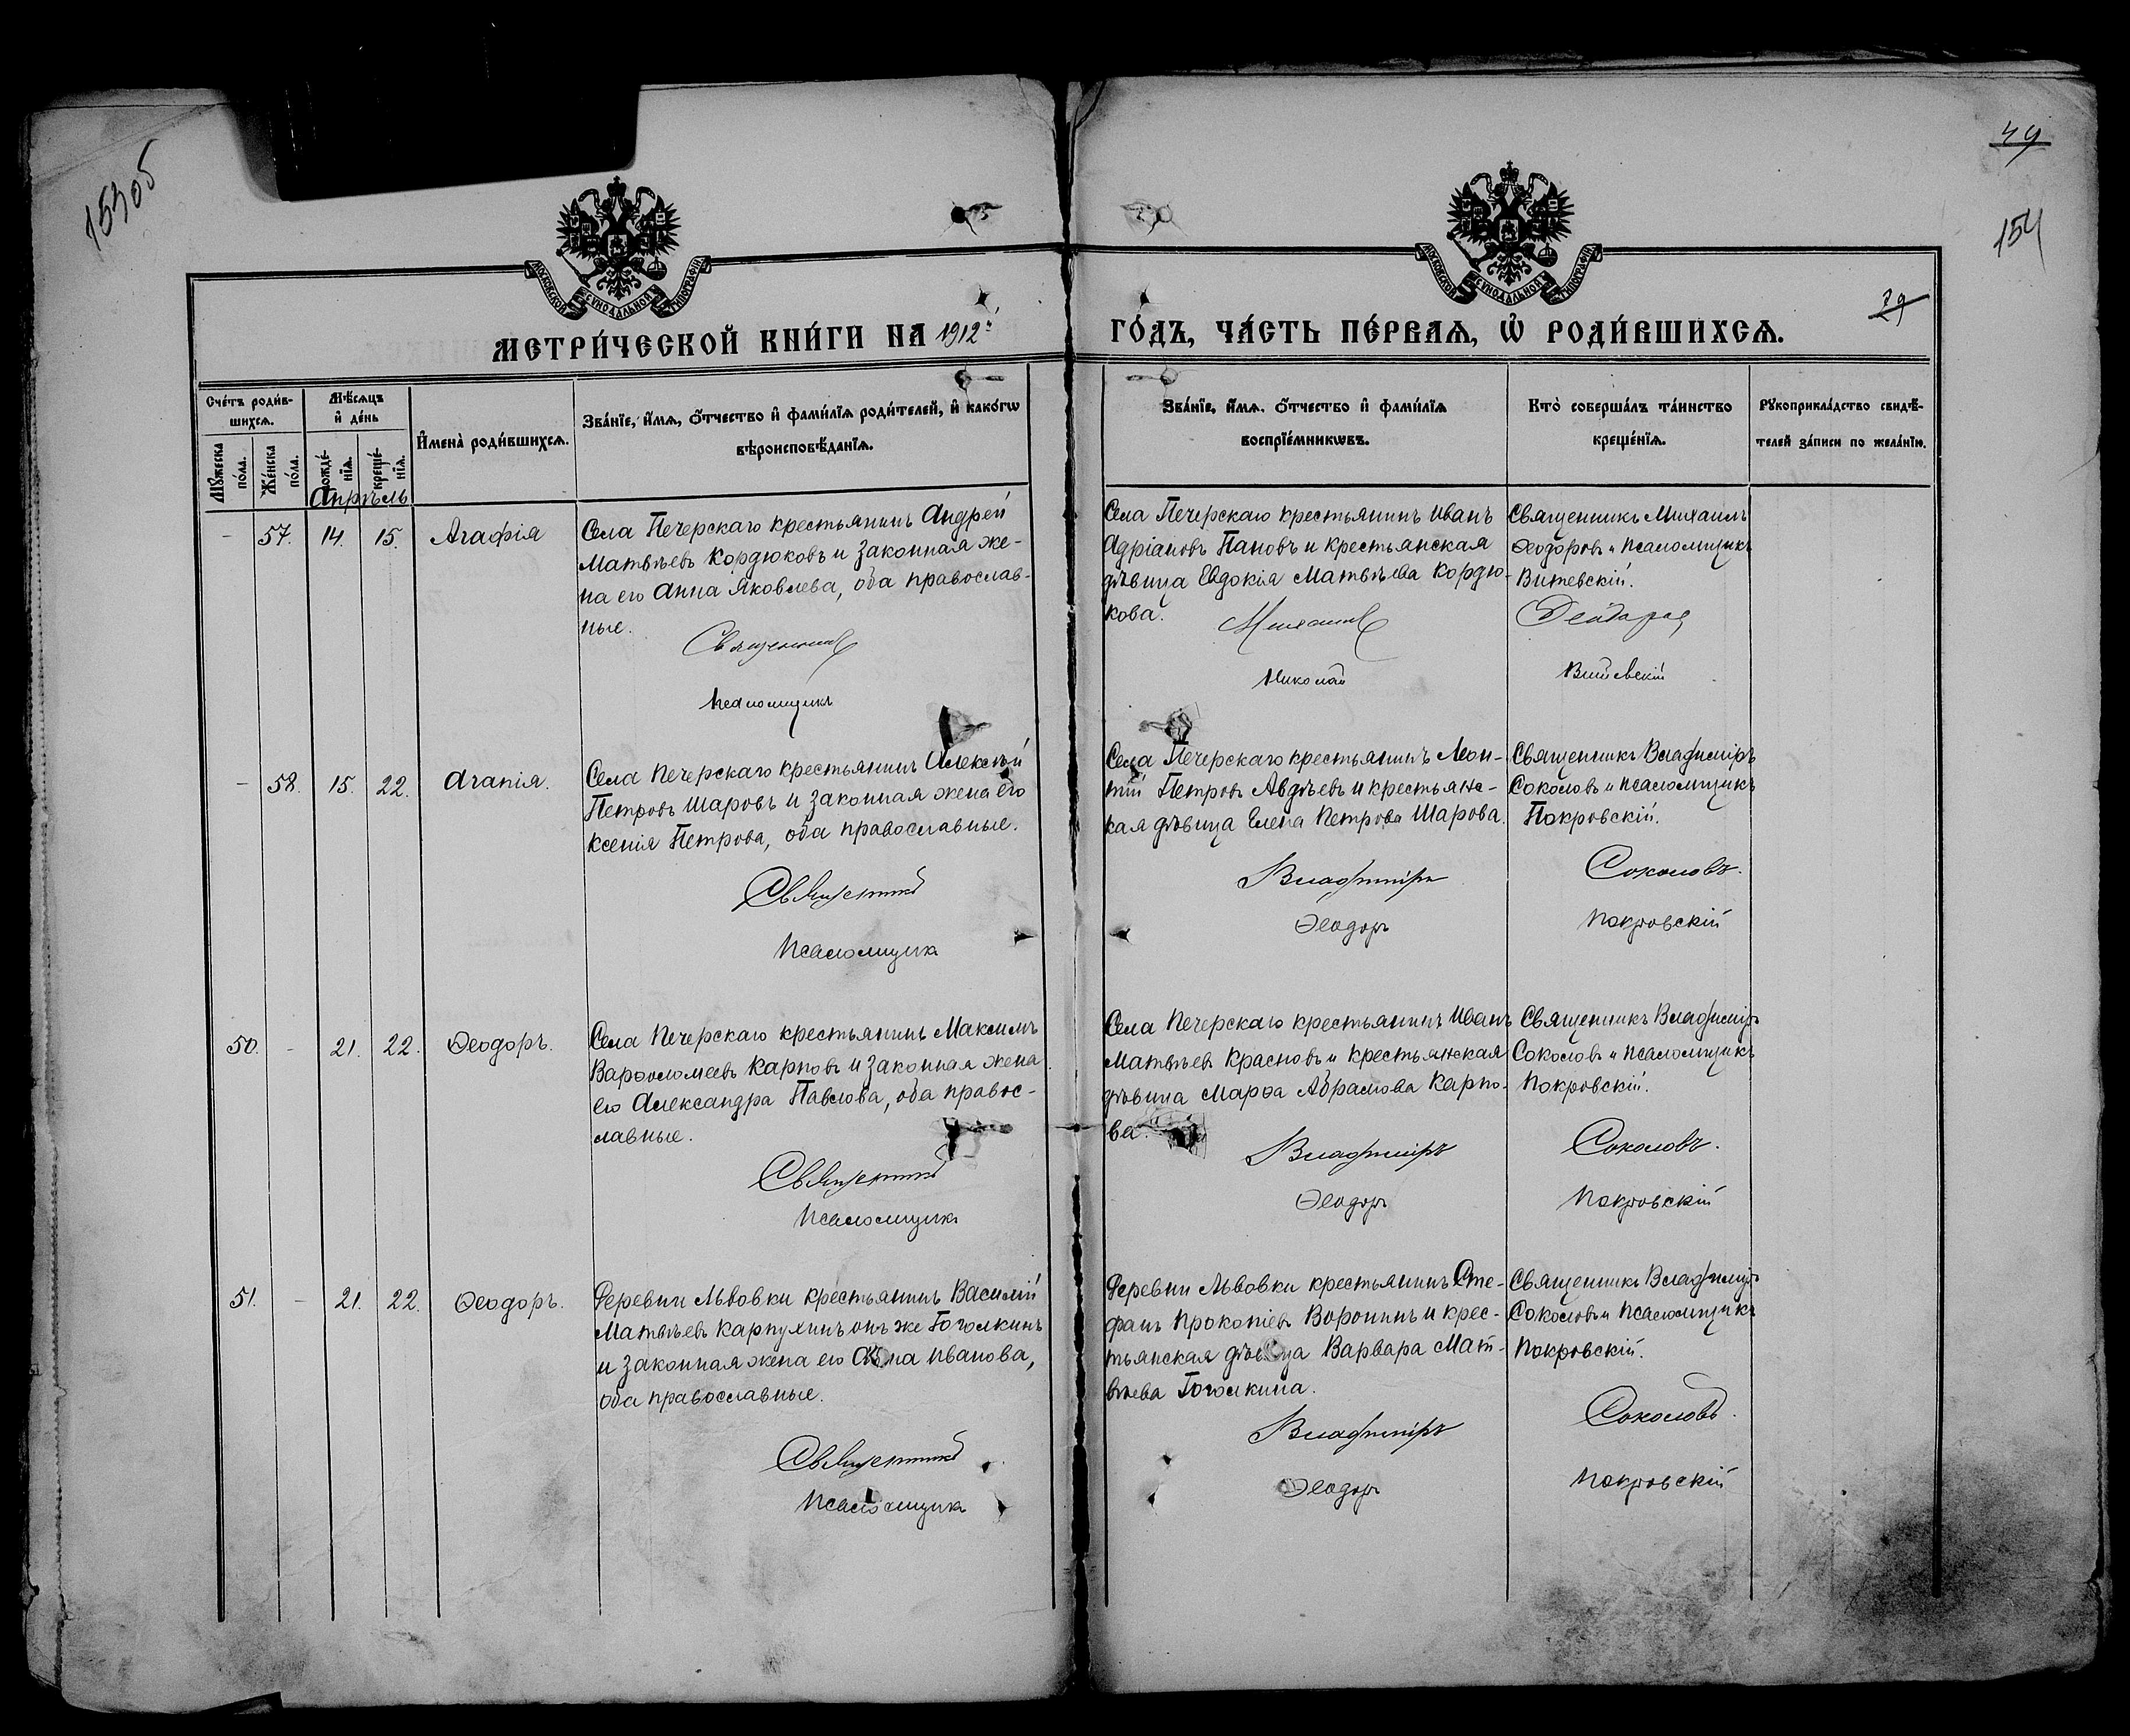 153об
49
154
29
МОСКОВСКОЙ СѴНОДАЛЬНОЙ ТИПОГРАФІИ
МОСКОВСКОЙ СѴНОДАЛЬНОЙ ТИПОГРАФІИ
МЕТРИ́ЧЕСКОЙ КНИ́ГИ НА 1912й ГО́ДЪ, ЧА́СТЬ ПЕ́РВАѦ, Ѡ҆ РОДИ́ВШИХСѦ.
Сче́тъ роди́в-
шихсѧ.
Мѣ́сѧцъ
и҆ де́нь
И҆мена̀ роди́вшихсѧ.
Зва́нїе, и҆́мѧ, ѻ҆́тчество и҆ фами́лїѧ роди́телей, и҆ како́гѡ
вѣроисповѣ́данїѧ.
Зва́нїе, и҆́мѧ, ѻ҆́тчество и҆ фами́лїѧ
воспрїе́мникѡвъ.
Кто̀ соверша́лъ та́инство
креще́нїѧ.
Рꙋкоприкла́дство свидѣ́-
телей за́писи по жела́нїю.
Мꙋ́жеска
по́ла.
Же́нска
по́ла.
рожде́-
нїѧ.
креще́-
нїѧ.
Апрѣль
- 57. 14. 15. Агафія
Села Печерскаго крестьянинъ Андрей
Матвѣевъ Кордюковъ и законная же-
на его Анна Яковлева, оба православ-
ные.
Священникъ
Псаломщикъ
Села Печерскаго крестьянинъ Иванъ
Адріановъ Пановъ и крестьянская
дѣвица Евдокія Матвѣева Кордю-
кова.
Михаилъ
Николай
Священникъ Михаилъ
Ѳеодоровъ и псаломщикъ
Витевскій.
Ѳеодоровъ
Витевскій
- 58. 15. 22. Агапія.
Села Печерскаго крестьянинъ Алексѣй
Петровъ Шаровъ и законная жена его
Ксенія Петрова, оба православные.
Священникъ
Псаломщикъ
Села Печерскаго крестьянинъ Леон-
тій Петровъ Авдѣевъ и крестьянс-
кая дѣвица Елена Петрова Шарова.
Владиміръ
Ѳеодоръ
Священникъ Владиміръ
Соколовъ и псаломщикъ
Покровскій.
Соколовъ.
Покровскій
50. - 21. 22. Ѳеодоръ.
Села Печерскаго крестьянинъ Максимъ
Варѳоломеевъ Карповъ и законная жена
его Александра Павлова, оба правос-
лавные.
Священникъ
Псаломщикъ
Села Печерскаго крестьянинъ Иванъ
Матвѣевъ Красновъ и крестьянская
дѣвица Марѳа Абрамова Карпо-
ва.
Владиміръ
Ѳеодоръ
Священникъ Владиміръ
Соколовъ и псаломщикъ
Покровскій.
Соколовъ.
Покровскій
51. - 21. 22. Ѳеодоръ.
Деревни Львовки крестьянинъ Василій
Матвѣевъ Карпухинъ онъ же Гоголкинъ
и законная жена его Анна Иванова,
оба православные.
Священникъ
Псаломщикъ
Деревни Львовки крестьянинъ Сте-
фанъ Прокопіевъ Воронинъ и крес-
тьянская дѣвица Варвара Мат-
вѣева Гоголкина.
Владиміръ
Ѳеодоръ
Священникъ Владиміръ
Соколовъ и псаломщикъ
Покровскій.
Соколовъ.
Покровскій